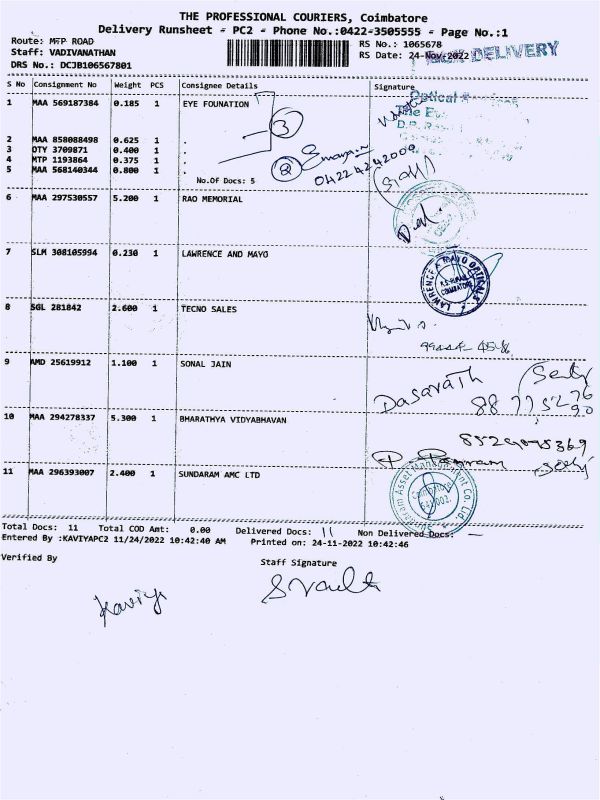 THE PROFESSIONAL COURIERS, Coimbatore
Delivery Runsheet - PC2 - Phone No.:0422-3505555 - Page No.:1
Route: MTP ROAD
RS No.: 1065678
Staff: VADIVANATHAN
RS Date: 24-Nov-2022
DELIVERY
DRS No.: DCJB106567801
S No Consignment No Weight PCS Consignee Details Signature
1 MAA 569187384 0.185 1 EYE FOUNATION
3
2 MAA 858088498 0.625 1 .
3 OTY 3709871 0.400 1 .
4 MTP 1193864 0.375 1 .
5 MAA 568140344 0.800 1 .
No.Of Docs: 5
2
04224242009
6 MAA 297530557 5.200 1 RAO MEMORIAL
7 SLM 308105994 0.230 1 LAWRENCE AND MAYO
LAWRENCE & MAYO OPTICALS
COIMBATORE
8 SGL 281842 2.600 1 TECNO SALES
9 AMD 25619912 1.100 1 SONAL JAIN
Dasarath
10 MAA 294278337 5.300 1 BHARATHYA VIDYABHAVAN
11 MAA 296393007 2.400 1 SUNDARAM AMC LTD
Sundaram Asset Management Co. Ltd.
Coimbatore
Total Docs: 11 Total COD Amt: 0.00 Delivered Docs: 11 Non Delivered Docs: -
Entered By :KAVIYAPC2 11/24/2022 10:42:40 AM Printed on: 24-11-2022 10:42:46
Verified By
Staff Signature
Kaviya